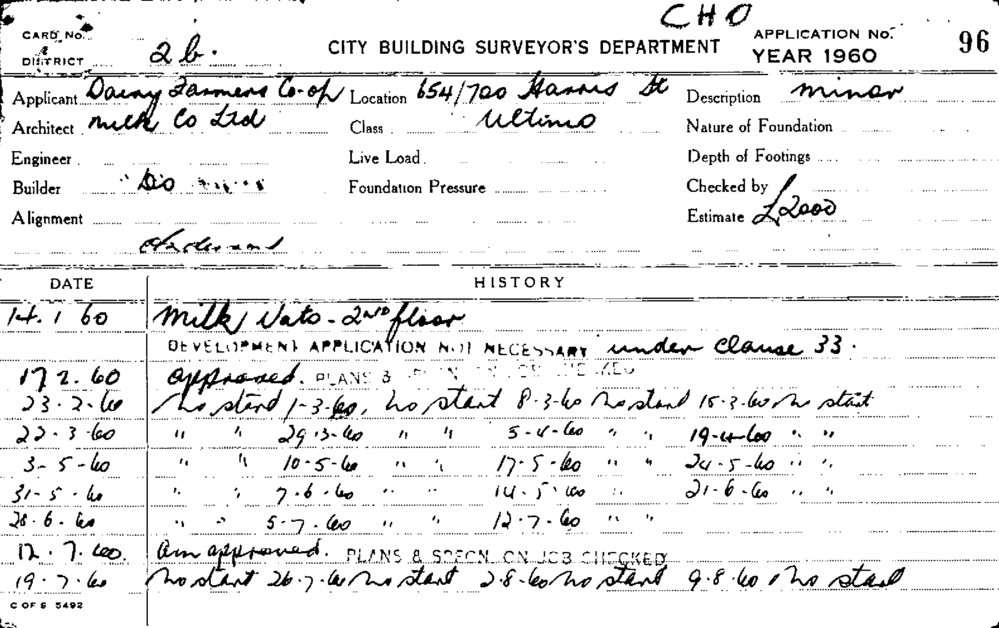 CHO
CARD No. CITY BUILDING SURVEYOR'S DEPARTMENT APPLICATION No. 96
DISTRICT 2b. YEAR 1960
Applicant Dairy Farmers Co-op Location 654/720 Harris St Description minor
Architect Milk Co Ltd Class Ultimo Nature of Foundation
Engineer Live Load Depth of Footings
Builder " Do Foundation Pressure Checked by
Alignment Estimate £2000
DATE HISTORY
14. 1 60 Milk Vats - 2nd floor
DEVELOPMENT APPLICATION NOT NECESSARY under Clause 33.
17 2. 60 approved. PLANS &
23. 2. 60 No start 1-3-60, No start 8-3-60 No start 15-3-60 No start
22. 3. 60 " " 29.3-60 " " 5-4-60 " " 19-4-60 " "
3- 5-60 " " 10-5-60 " " 17-5-60 " " 24-5-60 " "
31- 5. 60 " " 7.6.60 " " 14.5.60 " 21-6-60 " "
28. 6. 60 " " 5-7.60 " " 12.7.60 " "
12. 7. 60. Am approved. PLANS & SPECN. ON JOB CHECKED
19. 7. 60 No start 26.7.60 No start 2.8-60 No start 9.8.60 No start
C OF S 5492